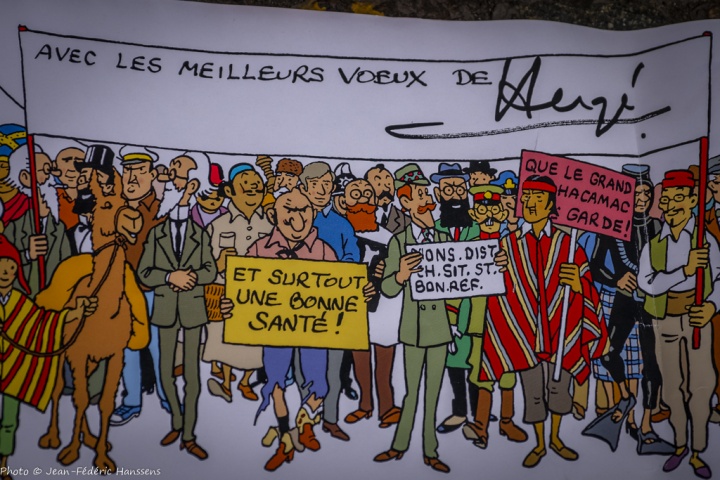 AVEC LES MEILLEURS VOEUX DE Hergé
QUE LE GRAND
HACAMAC
GARDE!
ONS. DIST.
CH. SIT. ST.
BON. REF.
ET SURTOUT
UNE BONNE
SANTÉ!
Photo © Jean-Frédéric Hanssens